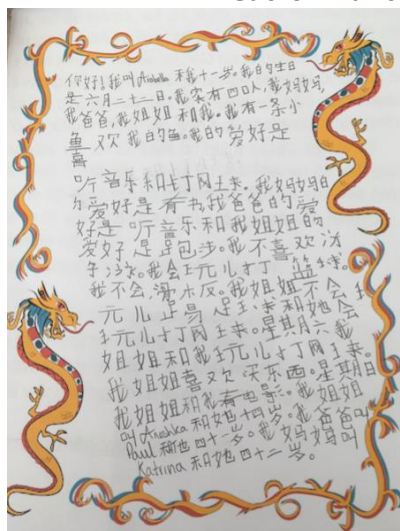 你好!我叫Arabella和我十一岁。我的生日
是六月二十二日。我家有四口人,我妈妈,
我爸爸,我姐姐和我。我有一条小
鱼喜欢我的鱼。我的爱好是
听音乐和打网球。我妈妈的
爱好是看书,我爸爸的爱
好是听音乐和我姐姐的
爱好是跑步。我不喜欢冰
我会玩儿打篮球。
我不会滑板。我姐姐不会玩
儿踢足球和她会
玩儿打网球。星期六我
姐姐和我玩儿打网球。
我姐姐喜欢买东西。星期日
我姐姐和我看电影。我姐姐
叫Anoshka和她十四岁。我爸爸叫
Paul和他四十一岁。我妈妈叫
Katrina和她四十二岁。